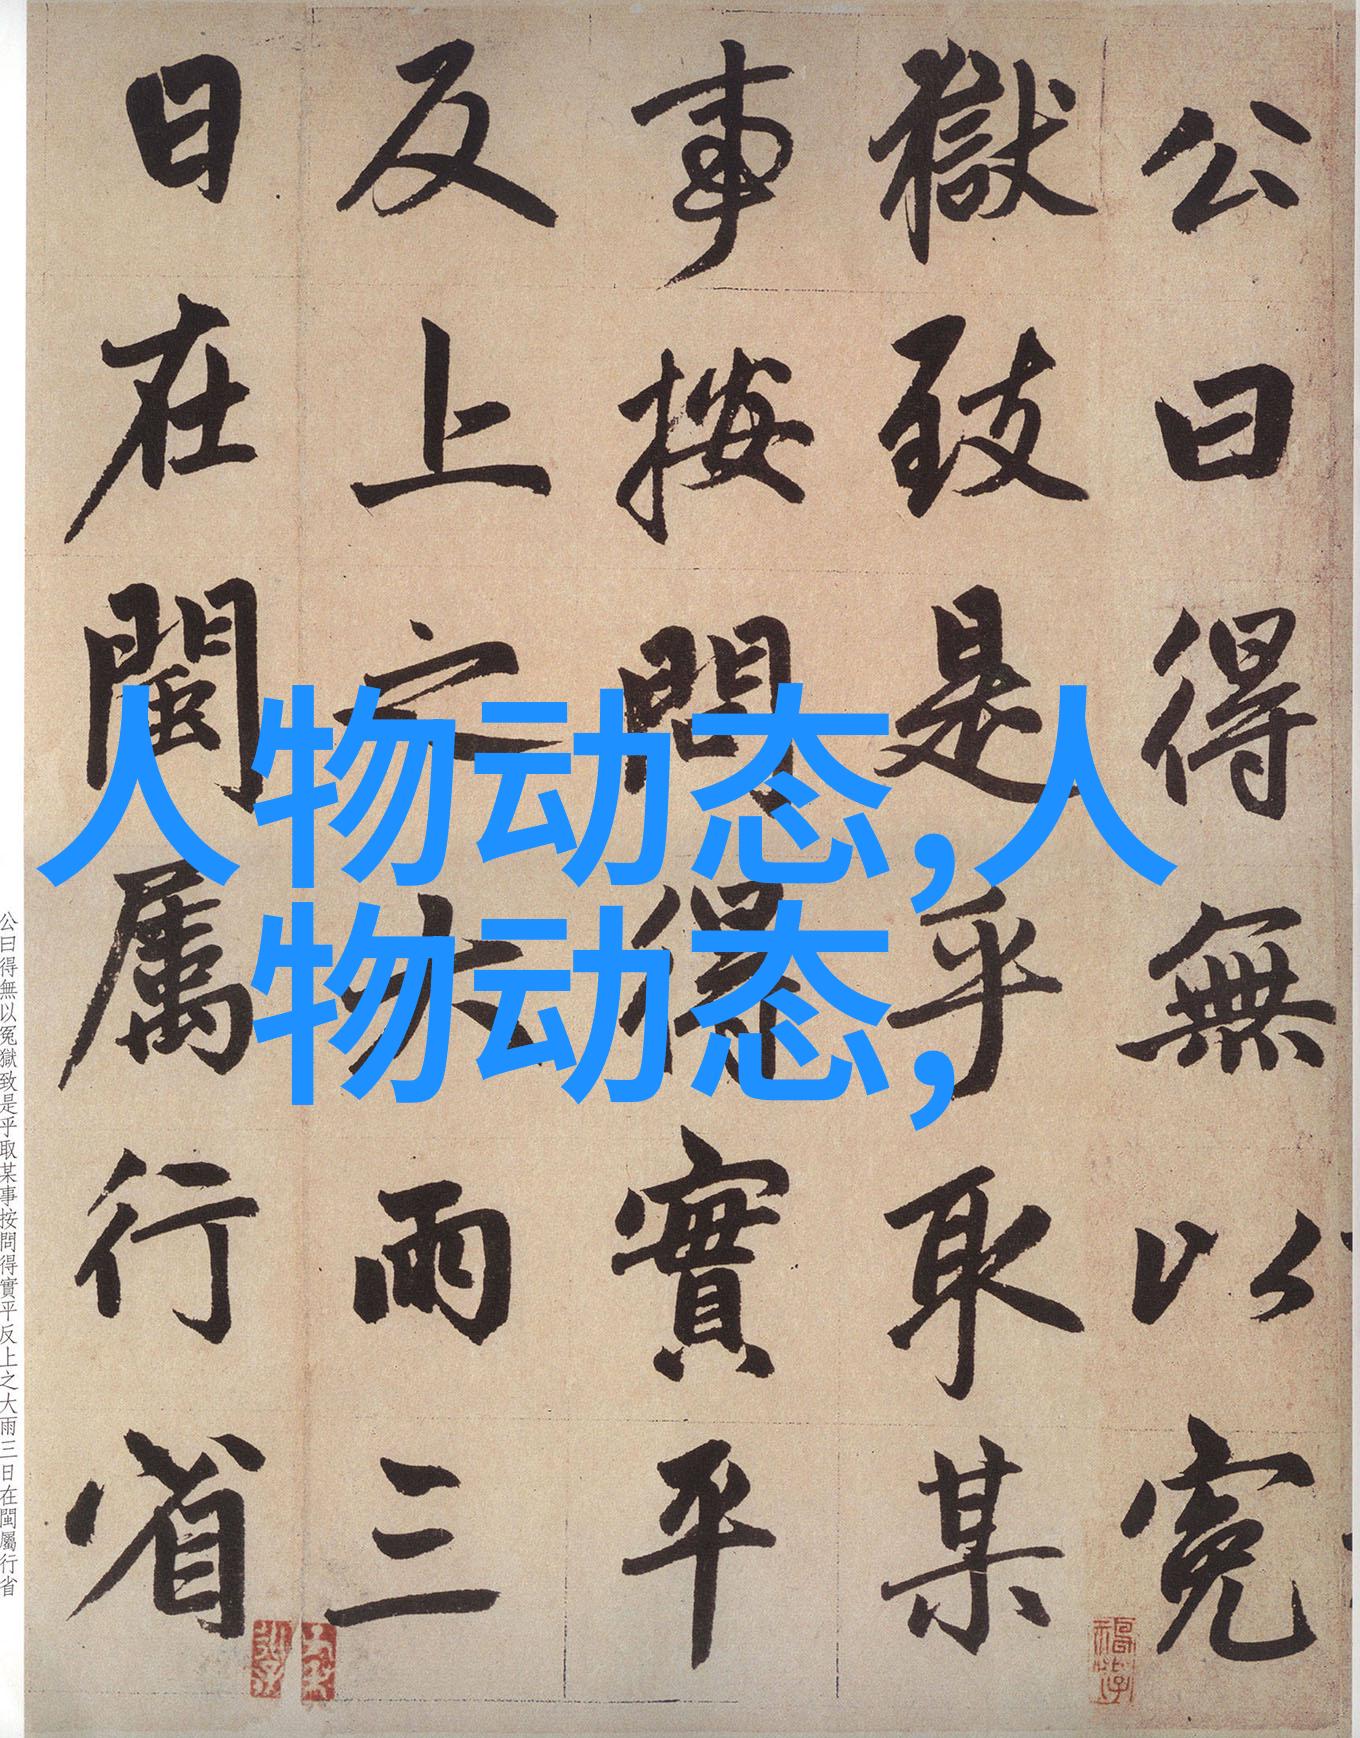 公曰得無以冤
獄致是乎取某
事按問得實平
反上之大雨三
日在閩属行省
人物动态,人
物动态,
公曰得無以冤獄致是乎取某事按問得實平反上之大雨三日在閩屬行省